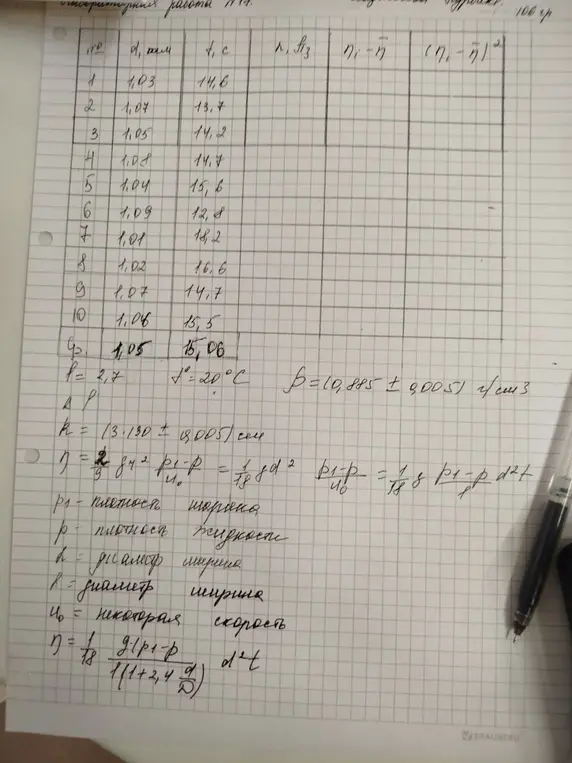 Лабораторная работа №11. 100 гр
№ d, мм t, с η, Пз ηᵢ - η̄ (ηᵢ - η̄)²
1 1,03 14,6
2 1,07 13,7
3 1,05 14,2
4 1,08 14,7
5 1,04 15,6
6 1,09 12,8
7 1,01 18,2
8 1,02 16,6
9 1,07 14,7
10 1,06 15,5
Ср. 1,05 15,06
l = 2,7 t° = 20°C ρ = (0,885 ± 0,005) г/см3
Δ l
R = (3.130 ± 0,005) см
η = 2/9 g r² (ρ1-ρ)/u₀ = 1/18 g d² (ρ1-ρ)/u₀ = 1/18 g (ρ1-ρ)/l d² t
ρ1 - плотность шарика
ρ - плотность жидкости
d = диаметр ширина
l = диаметр ширина
u₀ = некоторая скорость
η = 1/18 g(ρ1-ρ / l(1+2,4 d/D) d² t
BRAUBERG